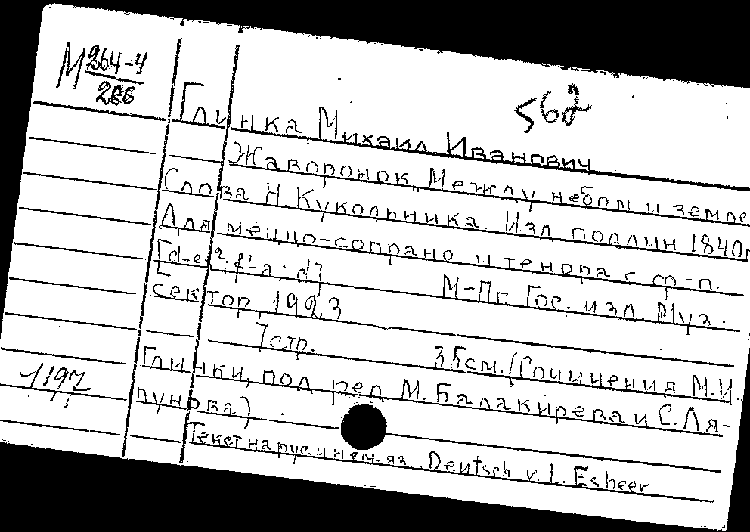 М 264-4
266
562
Глинка, Михаил Иванович
Жаворонок. Между небом и земле
Слова Н. Кукольника. Изд. подлин 1840г
Для меццо-сопрано и тенора с ф-п.
М-Пг. Гос. изд. Муз.
Сектор, 1923
7 стр. 35 см. (Сочинения М.И.
Глинки, под ред М. Балакирева и С. Ля-
1197
пунова)
Текст на рус и нем. яз. Deutsch v. I. Esbeer